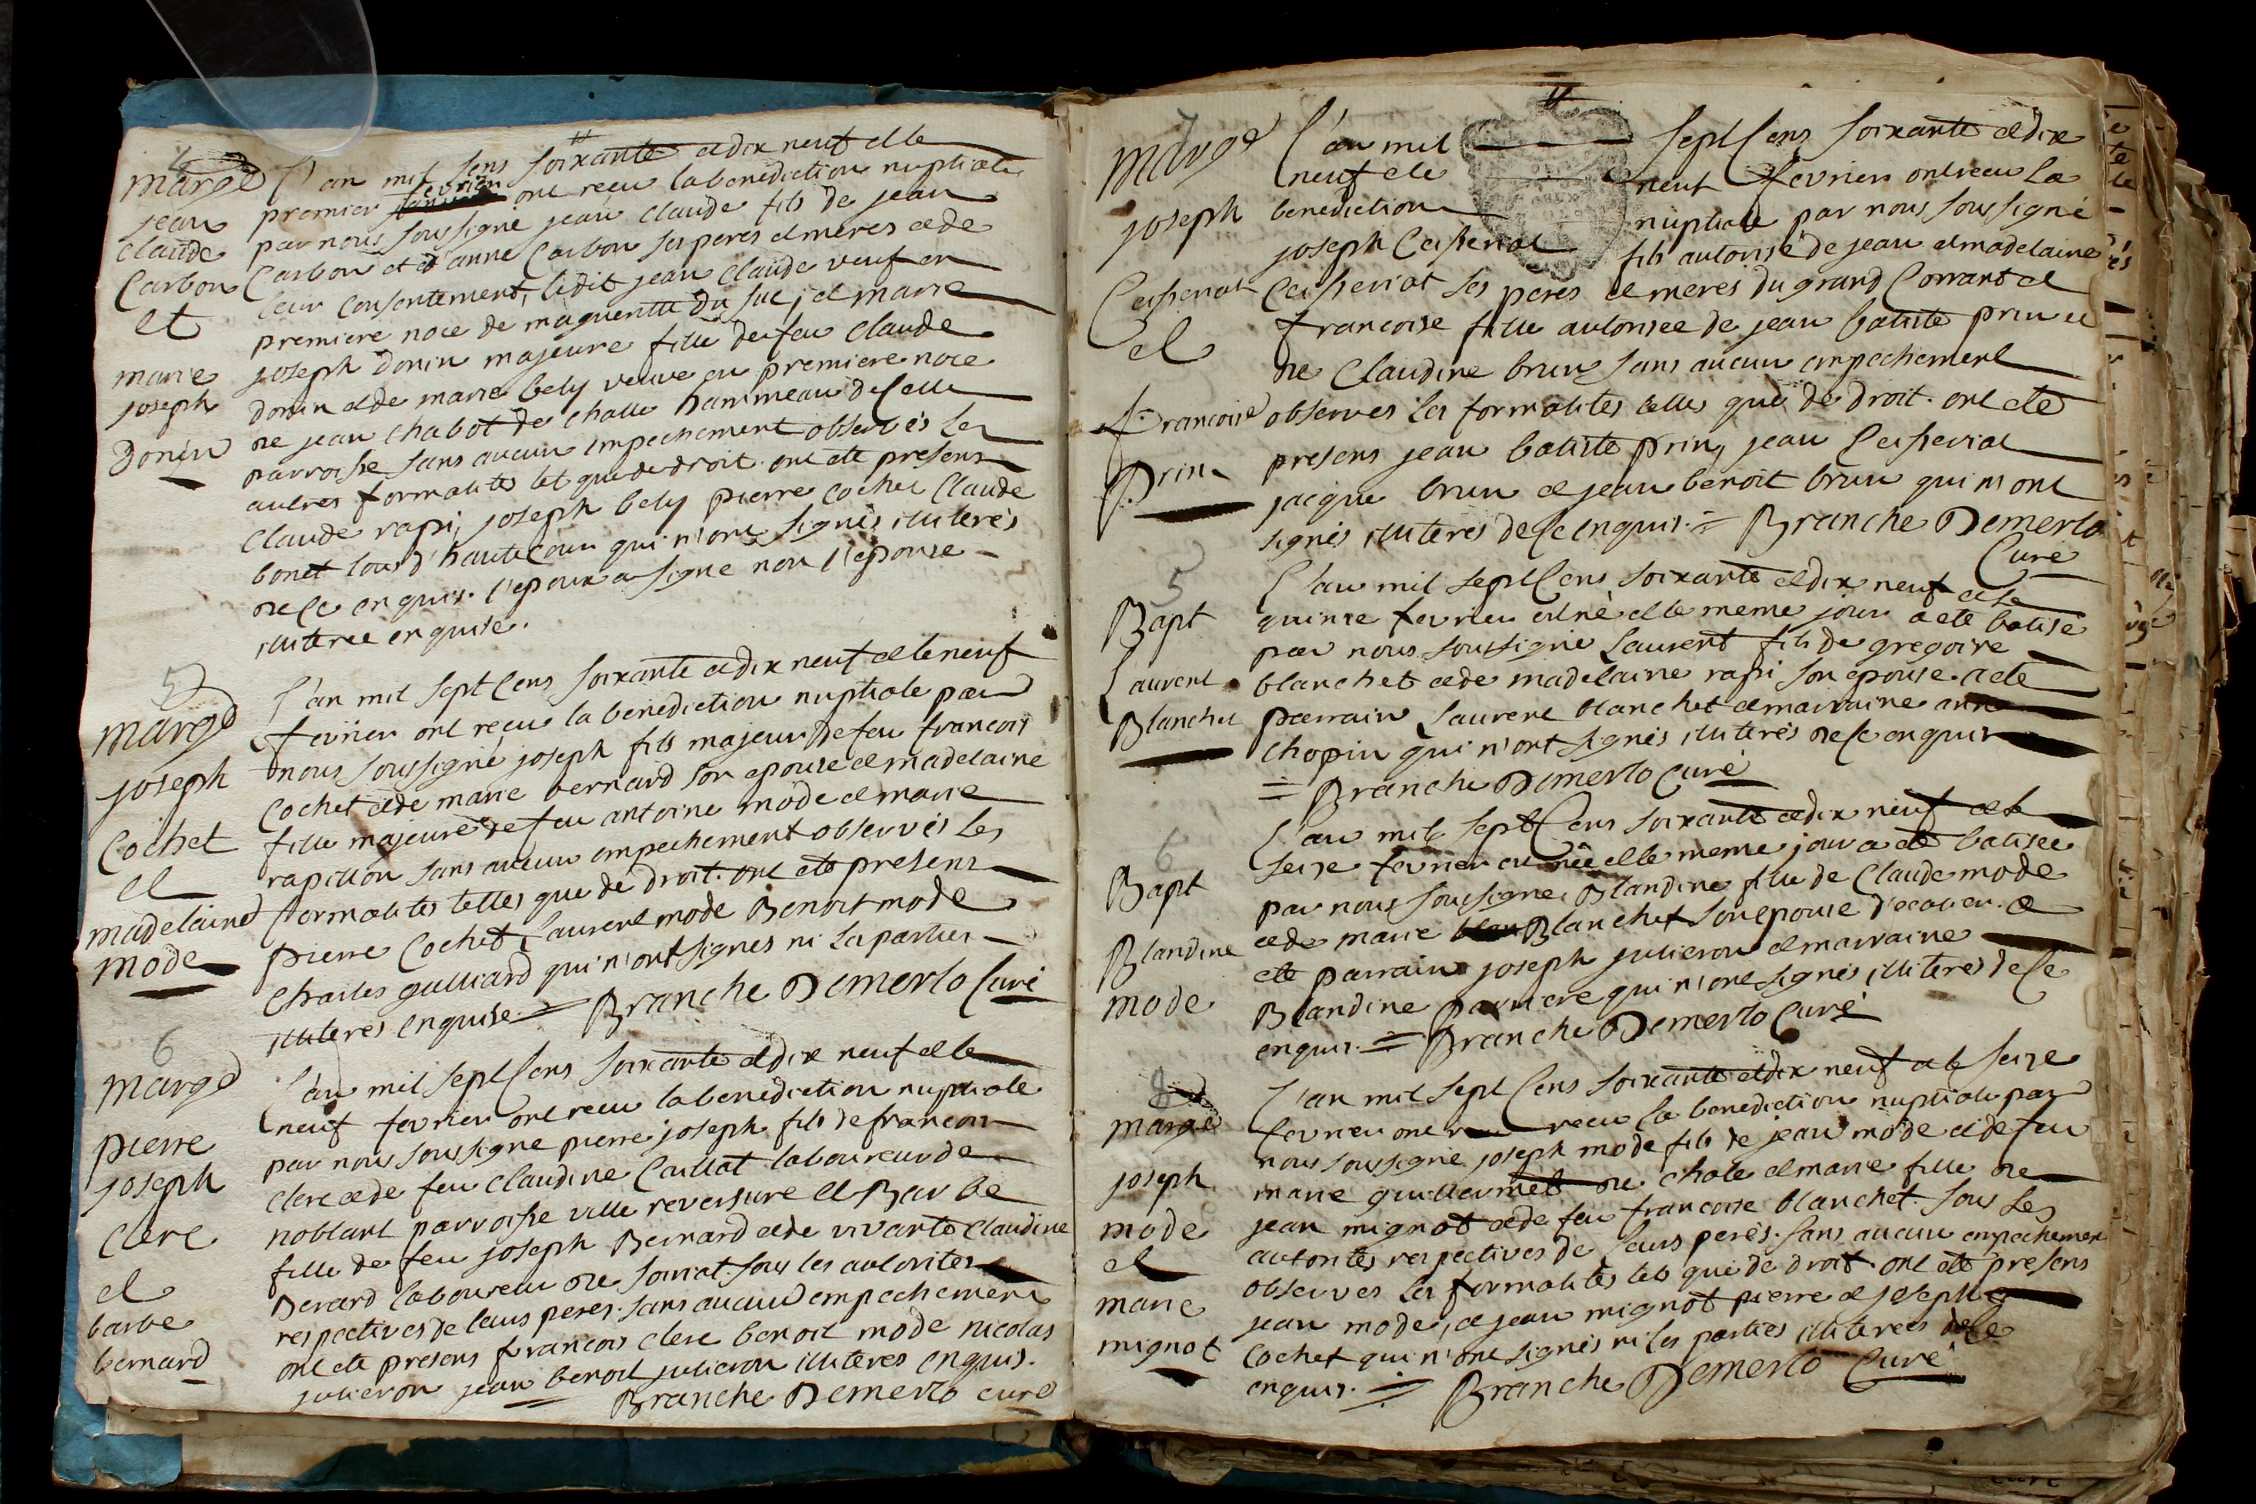 4
marge
jean
claude
Carbon
et
marie
joseph
Donin
L'an mil sens soixante et dix neuf et le
premier fevrier ont recu la benediction nuptiale
par nous soussigne jean claude fils de jean
Carbon et d'anne Carbon ses peres et meres et de
leur consentement, ledit jean claude veuf en
premiere noce de du suc, et marie
joseph donin majeure fille de feu claude
donin et de marie bely veuve en premiere noce
de jean chabot de challe hammeau de cette
parroisse sans aucun empechement observés les
autres formalités tel que de droit. ont eté presens
claude rapi, joseph bely pierre cochet claude
bonet tous d'hautecour qui n'ont signés illiterés
de ce enquis. l'epoux a signe non l'epouse
illiteree enquise.
5
marge
joseph
Cochet
et
madelaine
mode
L'an mil sept cens soixante et dix neuf et le neuf
fevrier ont recu la benediction nuptiale par
nous soussigné joseph fils majeur de feu francois
Cochet et de marie bernard son epouse et madelaine
fille majeure de feu antoine mode et marie
rapillon sans aucun empechement observés les
formalités telles que de droit. ont eté presens
pierre Cochet, laurent mode Benoit mode
Charles gulliard qui n'ont signes ni les parties
illiteres enquise. = Branche Demerlo Curé
6
marge
pierre
joseph
clerc
et
barbe
bernard
L'an mil sept cens soixante et dix neuf et le
neuf fevrier ont recu la benediction nuptiale
par nous soussigne pierre joseph fils de francois
clerc et de feu claudine Caillat laboureur de
noblant parroisse ville reversure et Barbe
fille de feu joseph Bernard et de vivante claudine
Berard laboureur de sous les autorités
respectives de leurs peres. sans aucun empechement
ont eté presens francois clerc benoit mode nicolas
julieron jean benoit julieron illiteres enquis.
= Branche Demerlo curé
7
marge
joseph
Ceisseriat
et
francoise
Prin
L'an mil sept cens soixante et dix
neuf et le neuf fevrier ont recu la
benediction nuptiale par nous soussigné
joseph Ceisseriat fils autorisé de jean et madelaine
Ceisseriat ses peres et meres du grand Corrant et
francoise fille autorisee de jean batiste prin et
de Claudine brun sans aucun empechement
observes les formalités telles que de droit. ont eté
presens jean batiste prin, jean Ceisseriat
jacque brun et jean benoit brun qui n'ont
signés illiteres de ce enquis. = Branche Demerlo
Curé
5
Bapt
Laurent
Blanchet
L'an mil sept cens soixante et dix neuf et le
quinze fevrier est né et le meme jour a eté batisé
par nous soussigné Laurent fils de gregoire
blanchet et de madelaine rapi son epouse. a ete
parrain Laurent blanchet et marraine anne
chopin qui n'ont signés illiterés de ce enquis
= Branche Demerlo Curé
6
Bapt
Blandine
mode
L'an mil sept cens soixante et dix neuf et le
seize fevrier est née et le meme jour a eté batisee
par nous soussigné, Blandine fille de Claude mode
et de marie Blanchet son epouse a
eté parrain joseph julieron et marraine
Blandine qui n'ont signés illiterés de ce
enquis. = Branche Demerlo Curé
8
marge
joseph
mode
et
marie
mignot
L'an mil sept cens soixante et dix neuf et le seize
fevrier ont recu la benediction nuptiale par
nous soussigné joseph mode fils de jean mode et de feu
marie guillermet de chale et marie fille de
jean mignot et de feu francoise blanchet. sous les
autorités respectives de leurs peres. sans aucun empechement
observés les formalités tels que de droit. ont eté presens
jean mode, et jean mignot pierre et joseph
Cochet qui n'ont signés ni les parties illiterees de ce
enquis. = Branche Demerlo Curé